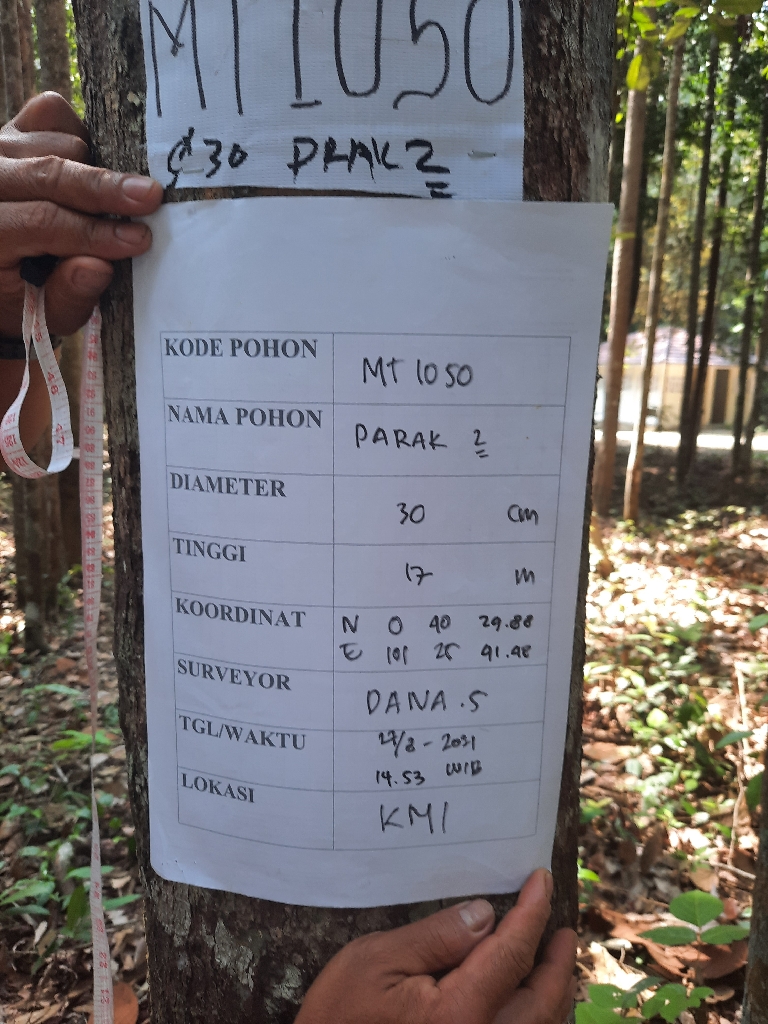 MT 1050
¢30 PRAK 2
KODE POHON MT 1050
NAMA POHON PARAK 2
DIAMETER 30 cm
TINGGI 17 m
KOORDINAT N 0 40 29.88
E 101 25 41.48
SURVEYOR DANA.S
TGL/WAKTU 27/8 - 2021
14.53 WIB
LOKASI KMI